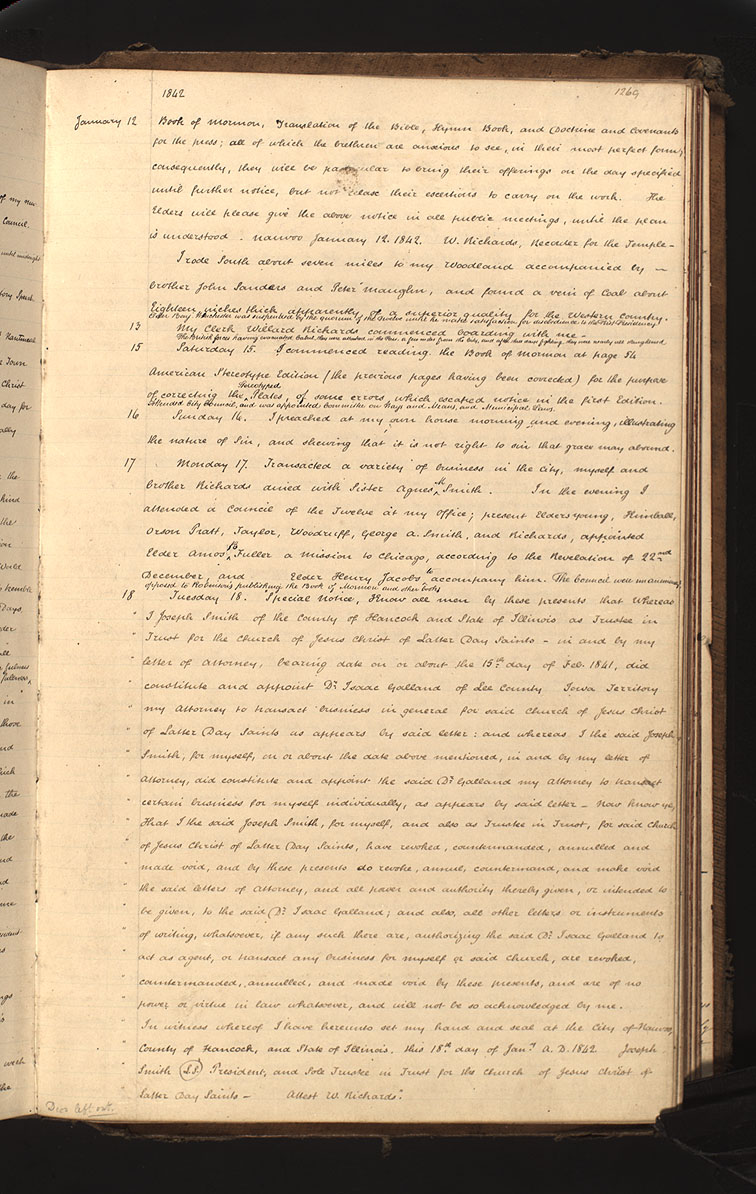 1842
1269
January 12 Book of Mormon, Translation of the Bible, Hymn Book, and Doctrine and Covenants
for the press; all of which the brethren are anxious to see, in their most perfect form;
consequently, they will be particular to bring their offerings on the day specified
until further notice, but not release their exertions to carry on the work. The
Elders will please give the above notice in all public meetings, until the plan
is understood. Nauvoo January 12. 1842. W. Richards, Recorder for the Temple –
I rode South about seven miles to my Woodland accompanied by –
brother John Sanders and Peter Maughan, and found a vein of Coal about
Eighteen inches thick apparently of a superior quality for the Western Country.
Elder Benj. Winchester was suspended by the quorum of the Twelve until he makes satisfaction for disobedience to the First Presidency
13 My Clerk Willard Richards commenced boarding with me –
The British forces having evacuated Cabul, they were attacked in the Pass a few miles from the City, and after five days fighting, they were nearly all slaughtered
15 Saturday 15. I commenced reading the Book of Mormon at page 54
American Stereotype Edition (the previous pages having been corrected) for the purpose
of correcting the Stereotyped Plates, of some errors which escaped notice in the first Edition.
Attended City Council, and was appointed Committee on Ways and Means, and Municipal Laws.
16 Sunday 16. I preached at my own house morning and evening, illustrating
the nature of Sin, and shewing that it is not right to sin that grace may abound.
17 Monday 17. Transacted a variety of business in the city, myself and
brother Richards dined with Sister Agnes M. Smith. In the evening I
attended a Council of the Twelve at my Office; present Elders Young, Kimball,
Orson Pratt, Taylor, Woodruff, George A. Smith, and Richards, appointed
Elder Amos B. Fuller a mission to Chicago, according to the Revelation of 22nd
December, and Elder Henry Jacobs to accompany him. The Council were unanimously
opposed to Robinson's publishing the Book of Mormon and other books
18 Tuesday 18. Special Notice, Know all men by these presents that Whereas
" I Joseph Smith of the County of Hancock and State of Illinois as Trustee in
" Trust for the Church of Jesus Christ of Latter Day Saints – in and by my
" letter of attorney, bearing date on or about the 15th. day of Feb. 1841, did
" constitute and appoint Dr. Isaac Galland of Lee County Iowa Territory
" my Attorney to transact business in general for said Church of Jesus Christ
" of Latter Day Saints as appears by said letter: and whereas I the said Joseph
" Smith, for myself, on or about the date above mentioned, in and by my letter of
" Attorney, did constitute and appoint the said Dr. Galland my Attorney to transact
" certain business for myself individually, as appears by said letter – Now know ye,
" that I the said Joseph Smith, for myself, and also as Trustee in Trust, for said Church
" of Jesus Christ of Latter Day Saints, have revoked, countermanded, annulled and
" made void, and by these presents do revoke, annul, countermand, and make void
" the said letters of Attorney, and all power and authority thereby given, or intended to
" be given, to the said Dr. Isaac Galland; and also, all other letters or instruments
" of writing, whatsoever, if any such there are, authorizing the said Dr. Isaac Galland to
" act as agent, or transact any business for myself or said Church, are revoked,
" countermanded, annulled, and made void by these presents, and are of no
" power or virtue in law whatsoever, and will not be so acknowledged by me.
" In witness whereof I have hereunto set my hand and seal at the City of Nauvoo,
" County of Hancock, and State of Illinois, this 18th. day of Jany. A.D. 1842 Joseph
" Smith L.S. President, and Sole Trustee in Trust for the Church of Jesus Christ of
" Latter Day Saints – Attest W. Richards."